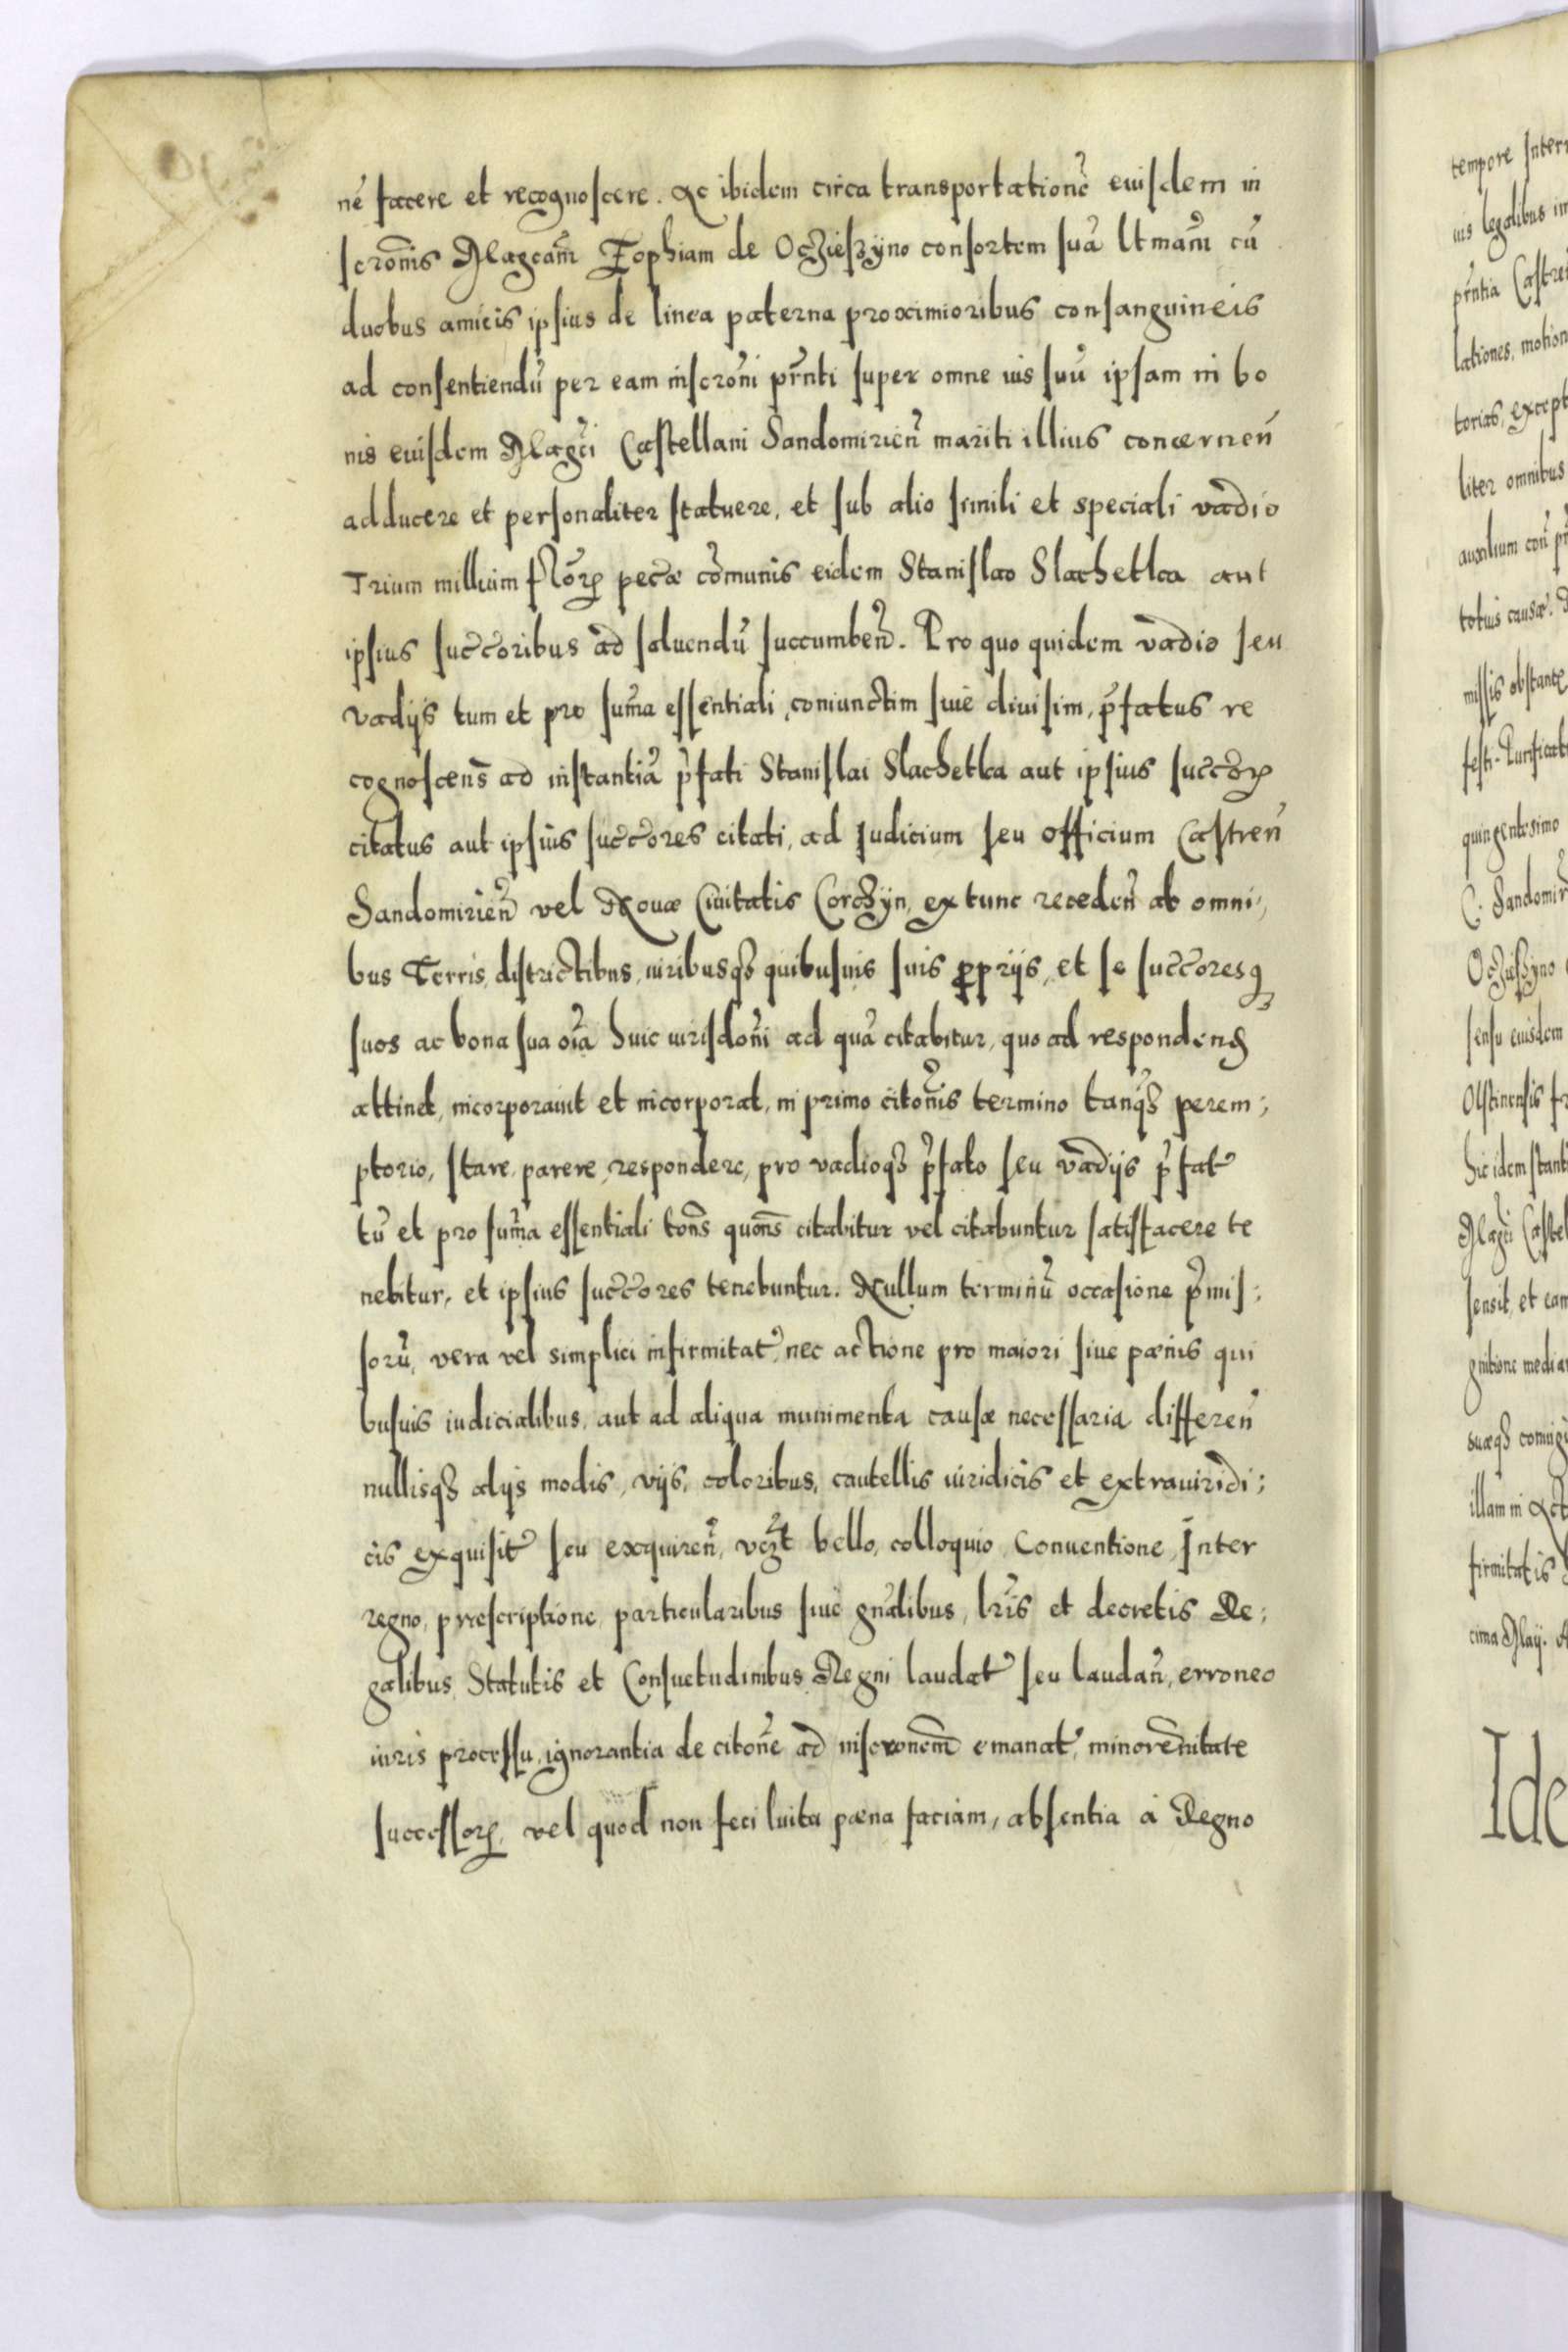 nē facere et recognoscere. Ac ibidem circa transportationē eiusdem in
scronīs Magcam̄ Zophiam de Oczieszyno consortem suā ltmam̄ cū
duobus amicis ipsius de linea paterna proximioribus consanguineis
ad consentiendū per eam inscronī prn̄ti super omne ius suū ipsam in bo
nis eiusdem Magcī Castellani Sandomirien̄ mariti illius concernen̄
adducere et personaliter statuere, et sub alio simili et speciali vadio
Trium millium flōrꝝ pecæ cōmunis eidem Stanislao Slachetka aut
ipsius succ̄oribus ad soluendū succumben̄. Pro quo quidem vadio seu
vadijs tum et pro sum̄a essentiali, coniunctim siue diuisim, p̄fatus re
cognoscens ad instantiā p̄fati Stanislai Slachetka aut ipsius succ̄orꝝ
citatus aut ipsius succ̄ores citati, ad Judicium seu officium Castren̄
Sandomirien̄ vel Nouæ Ciuitatis Corczyn, ex tunc receden̄ ab omni,
bus Terris, districtibus, iuribusqꝫ quibusuis suis ꝓprijs, et se succ̄oresqꝫ
suos ac bona sua oīa huic iurisdonī ad quā citabitur, quo ad respondenđ
attinet, incorporauit et incorporat, in primo citonīs termino tanqꝫ perem;
ptorio, stare, parere, respondere, pro vadioqꝫ p̄fato seu vadijs p̄fat̄
tū et pro sum̄a essentiali tons̄ quons̄ citabitur vel citabuntur satisfacere te
nebitur, et ipsius succ̄ores tenebuntur. Nullum terminū occasione p̄mis;
sorū, vera vel simplici infirmitat̄, nec actione pro maiori siue pœnis qui
busuis iudicialibus, aut ad aliqua munimenta causæ necessaria differen̄
nullisqꝫ alijs modis, vijs, coloribus, cautellis iuridicis et extraiuridi;
cis exquisit̄ seu exquiren̄, vczt̄ bello, colloquio, Conuentione, Inter
regno, præscriptione, particularibus siue gnalibus, lrīs et decretis Re;
galibus, Statutis et Consuetudinibus Regni laudat̄ seu laudan̄, erroneo
iuris processu, ignorantia de citonē ad inscronem̄ emanat̄, minorenn̄itate
successorꝝ, vel quod non feci luita pœna faciam, absentia á Regno
tempore Inter
iis legalibus in
prn̄tia Castre
lationes, motion
torias, except
liter omnibus
auxilium
totius causæ.
missis obstante
festi Purificat
quingentesimo
C. Sandomir
Oczieszyno
sensu eiusdem
Olstinensis fr
hic idem stant
Magcī Castel
sensit, et eam
gnitione media
suæqꝫ coniugi
illam in Act
firmitatis
cima Maij.
Ide